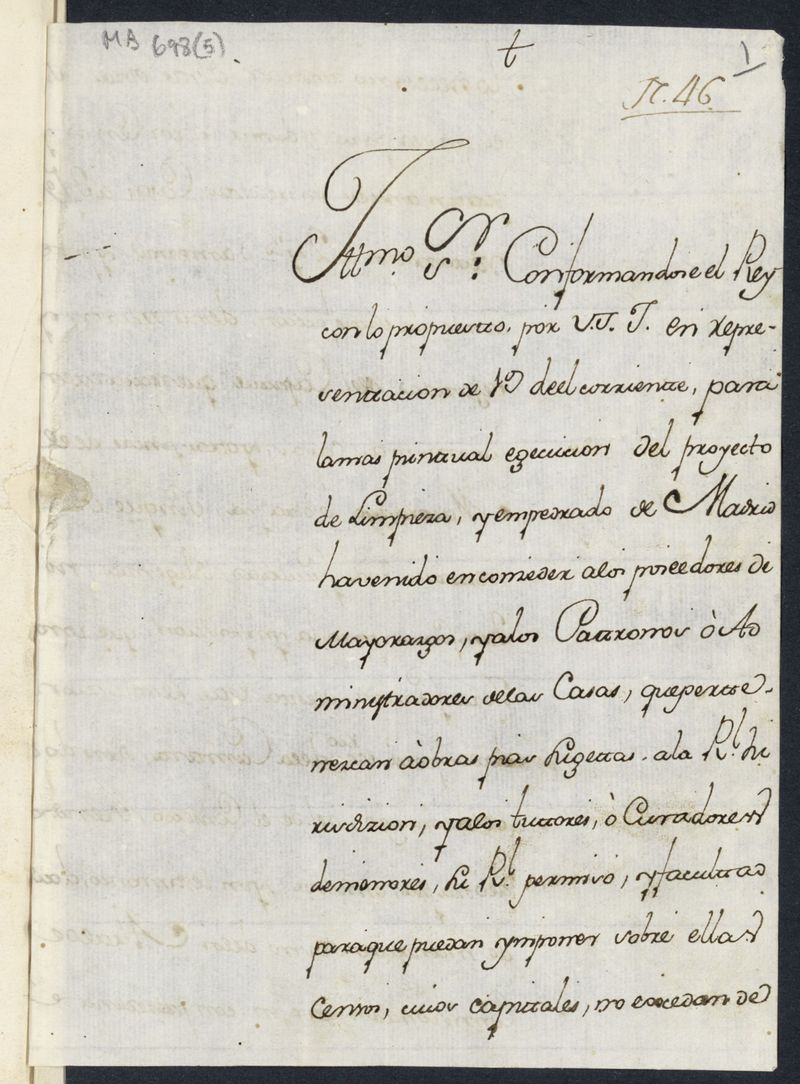 MA 698(5)
t
1
N. 46
Illmo. Sr.: Conformandose el Rey
con lo propuesto, por V.S.I. en repre-
sentacion de 19 deel corriente, para
la mas puntual egecucion del proyecto
de Limpieza, y empedrado de Madrid
ha venido en conzeder a los poseedores de
Mayorazgos, y a los Patronos ò Ad
ministradores de las Casas, que perte-
nezcan à obras pias sugetas a la Rl. Ju
risdizion, y a los tuttores, ò Curadores
de menores, su Rl. permiso, y facultad
para que puedan ymponer sobre ellas
Censos, cuios capitales, no excedan de